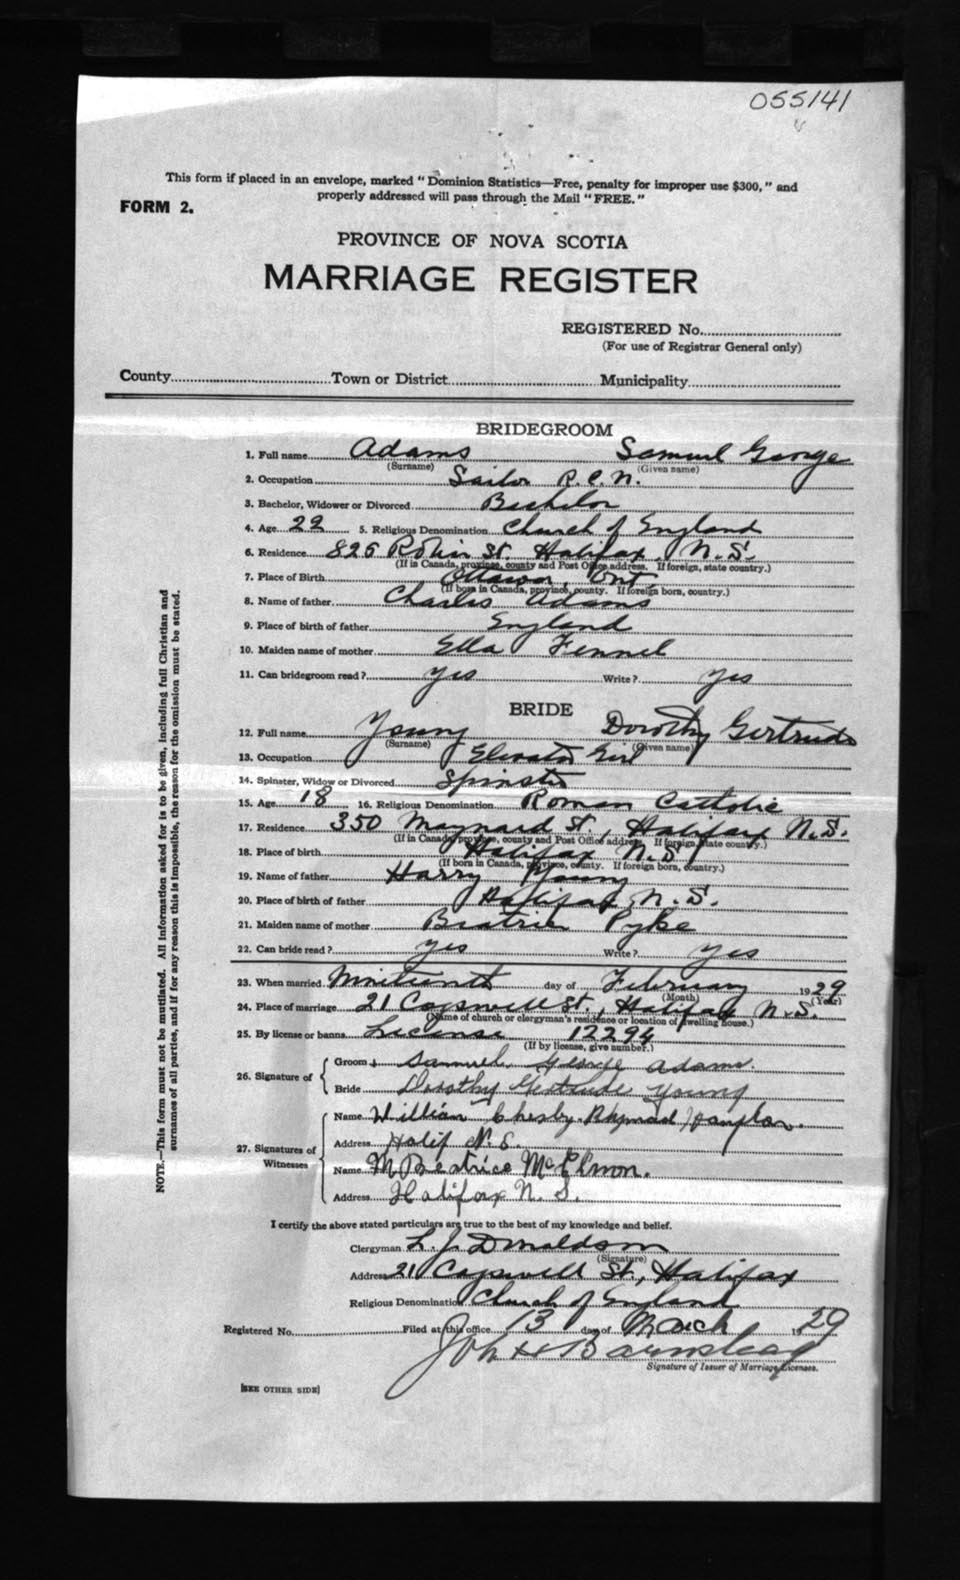 055141
This form if placed in an envelope, marked "Dominion Statistics—Free, penalty for improper use $300," and
properly addressed will pass through the Mail "FREE."
FORM 2.
PROVINCE OF NOVA SCOTIA
MARRIAGE REGISTER
REGISTERED No.
(For use of Registrar General only)
County Town or District Municipality
BRIDEGROOM
1. Full name Adams Samuel George
(Surname) (Given name)
2. Occupation Sailor R.C.N.
3. Bachelor, Widower or Divorced Bachelor
4. Age 22 5. Religious Denomination Church of England
6. Residence 826 Robie St. Halifax, N.S.
(If in Canada, province, county and Post Office address. If foreign, state country.)
7. Place of Birth Ottawa, Ont.
(If born in Canada, province, county. If foreign born, country.)
8. Name of father Charles Adams
9. Place of birth of father England
10. Maiden name of mother Ella Fennel
11. Can bridegroom read? yes Write? yes
BRIDE
12. Full name Young Dorothy Gertrude
(Surname) (Given name)
13. Occupation Elevator Girl
14. Spinster, Widow or Divorced Spinster
15. Age 18 16. Religious Denomination Roman Catholic
17. Residence 350 Maynard St., Halifax N.S.
(If in Canada, province, county and Post Office address. If foreign, state country.)
18. Place of birth Halifax N.S.
(If born in Canada, province, county. If foreign born, country.)
19. Name of father Harry Young
20. Place of birth of father Halifax, N.S.
21. Maiden name of mother Beatrice Pyke
22. Can bride read? yes Write? yes
23. When married Nineteenth day of February 1929
(Month) (Year)
24. Place of marriage 21 Cogswell St., Halifax N.S.
(Name of church or clergyman's residence or location of dwelling house.)
25. By license or banns License 12294
(If by license, give number.)
26. Signature of
Groom Samuel George Adams.
Bride Dorothy Gertrude Young
27. Signatures of Witnesses
Name William Chesby
Address Halif N.S.
Name M Beatrice McElmon.
Address Halifax N.S.
I certify the above stated particulars are true to the best of my knowledge and belief.
Clergyman L. J. Donaldson
(Signature)
Address 21 Cogswell St., Halifax
Religious Denomination Church of England
Registered No. Filed at this office 13 day of March 1929
John H Barnstead
Signature of Issuer of Marriage Licenses.
[SEE OTHER SIDE]
NOTE.—This form must not be mutilated. All information asked for is to be given, including full Christian and
surnames of all parties, and if for any reason this is impossible, the reason for the omission must be stated.